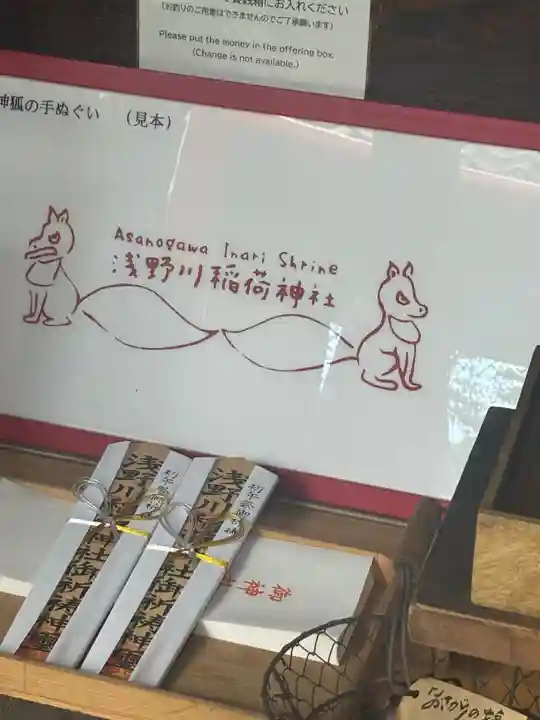 賽銭箱にお入れください
（お釣りのご用意はできませんのでご了承願います）
Please put the money in the offering box.
(Change is not available.)
神狐の手ぬぐい （見本）
Asanogawa Inari Shrine
浅野川稲荷神社
初午祭御祈祷
浅野川稲荷神社御祈祷神璽
初午祭御祈祷
浅野川稲荷神社御祈祷神璽